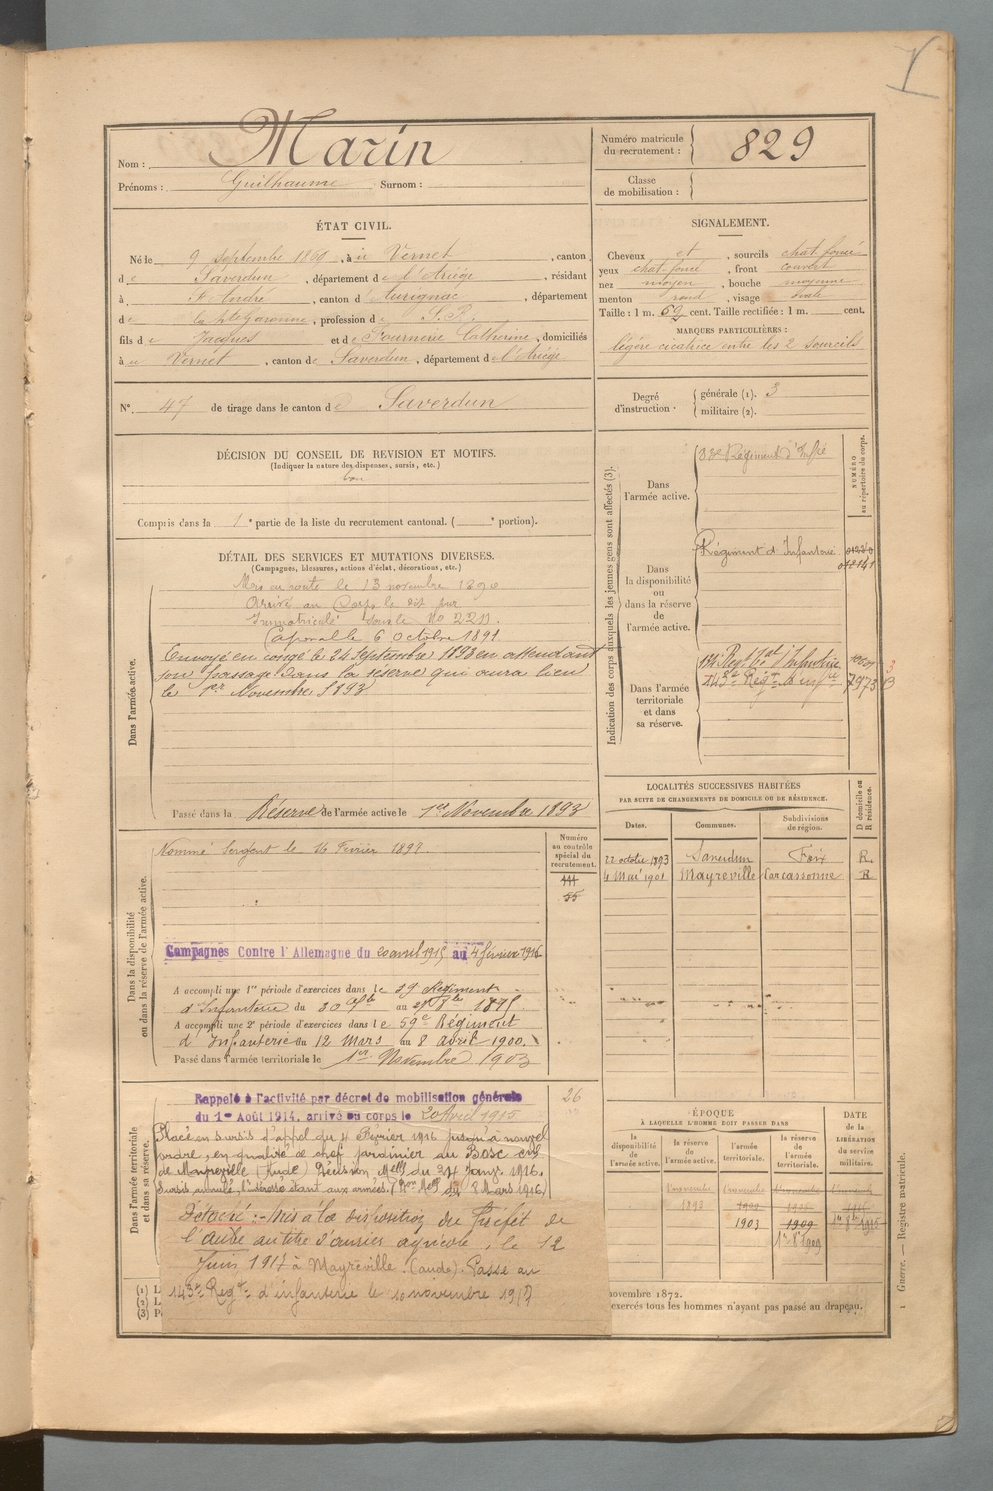 Nom : Marin
Prénoms : Guilhaume Surnom :
Numéro matricule
du recrutement : 829
Classe
de mobilisation :
ÉTAT CIVIL.
Né le 9 septembre , à Vernet , canton
de Saverdun , département de l'Ariége , résidant
à St André , canton d'Aurignac , département
de la Hte Garonne , profession de S.P.
fils de Jacques et de Fournerie Catherine , domiciliés
à Vernet , canton de Saverdun , département de l'Ariége
N° 47 de tirage dans le canton de Saverdun
SIGNALEMENT.
Cheveux et , sourcils chat. foncé
yeux chat. foncé , front couvert
nez moyen , bouche moyenne
menton rond , visage ovale
Taille : 1 m. 62 cent. Taille rectifiée : 1 m. cent.
MARQUES PARTICULIÈRES :
légère cicatrice entre les 2 sourcils
Degré
d'instruction :
générale (1). 3
militaire (2).
DÉCISION DU CONSEIL DE REVISION ET MOTIFS.
(Indiquer la nature des dispenses, sursis, etc.)
bon
Compris dans la 1e partie de la liste du recrutement cantonal. ( e portion).
DÉTAIL DES SERVICES ET MUTATIONS DIVERSES.
(Campagnes, blessures, actions d'éclat, décorations, etc.)
Dans l'armée active.
Mis en route le 13 novembre 1890
Arrivé au Corps le dit jour
Immatriculé sous le No
Caporal le 6 Octobre 1891.
Envoyé en congé le 24 Septembre 1893 en attendant
son passage dans la réserve qui aura lieu
le 1er Novembre 1893.
Passé dans la Réserve de l'armée active le 1er Novembre 1893
Indication des corps auxquels les jeunes gens sont affectés (3).
NUMÉRO
au répertoire du corps.
Dans
l'armée active.
Régiment d'Infie
Dans
la disponibilité
ou
dans la réserve
de
l'armée active.
Régiment d'Infanterie
Dans l'armée
territoriale
et dans
sa réserve.
Regt tal d'Infanterie
143e Regt d'Infie
7973
LOCALITÉS SUCCESSIVES HABITÉES
PAR SUITE DE CHANGEMENTS DE DOMICILE OU DE RÉSIDENCE.
Dates. Communes. Subdivisions de région. D domicile ou R résidence.
22 octobre 1893 Saverdun Foix R
4 Mai 1901 Mayreville Carcassonne R
Dans la disponibilité
ou dans la réserve de l'armée active.
Numéro
au contrôle
spécial du
recrutement.
Nommé Sergent le 16 Février
55
Campagnes Contre l'Allemagne du 20 avril 1915 au 4 février 1916
A accompli une 1re période d'exercices dans le Régiment
d'Infanterie du 30 au 1895
A accompli une 2e période d'exercices dans le 59e Régiment
d'Infanterie du 12 Mars au 8 avril 1900.
Passé dans l'armée territoriale le 1er Novembre 1903
Dans l'armée territoriale
et dans sa réserve.
26
Rappelé à l'activité par décret de mobilisation générale
du 1er Août 1914, arrivé au corps le 20 Avril 1915
Placé en sursis d'appel du 4 Février 1916 jusqu'à nouvel
ordre, en qualité de chef jardinier au Bosc
de Mayreville (Aude) Décision Melle du 24 Janv. 1916.
Sursis annulé, l'intéressé étant aux armées. ( 8 Mars 1916)
Détaché :- Mis à la disposition du Préfet de
l'Aude au titre d'ouvrier agricole, le 12
Juin 1917 à Mayreville (Aude). Passe au
143e Regt d'infanterie le 10 novembre 1917
ÉPOQUE
À LAQUELLE L'HOMME DOIT PASSER DANS
la disponibilité de l'armée active. la réserve de l'armée active. l'armée territoriale. la réserve de l'armée territoriale.
DATE
DE LA
LIBÉRATION
du service
militaire.
1893
1903 1909
1909
(1)
(2)
(3)
novembre 1872.
exercés tous les hommes n'ayant pas passé au drapeau.
1 Guerre. — Registre matricule.